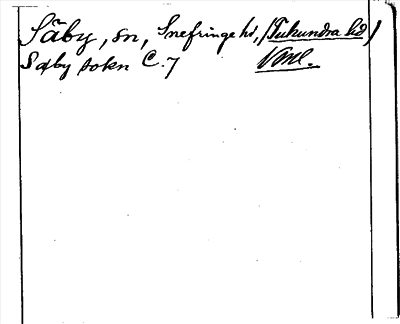 Säby, sn, Snefringe hd, (Tuhundra hd)
Säby sokn C. 7 Vsml.